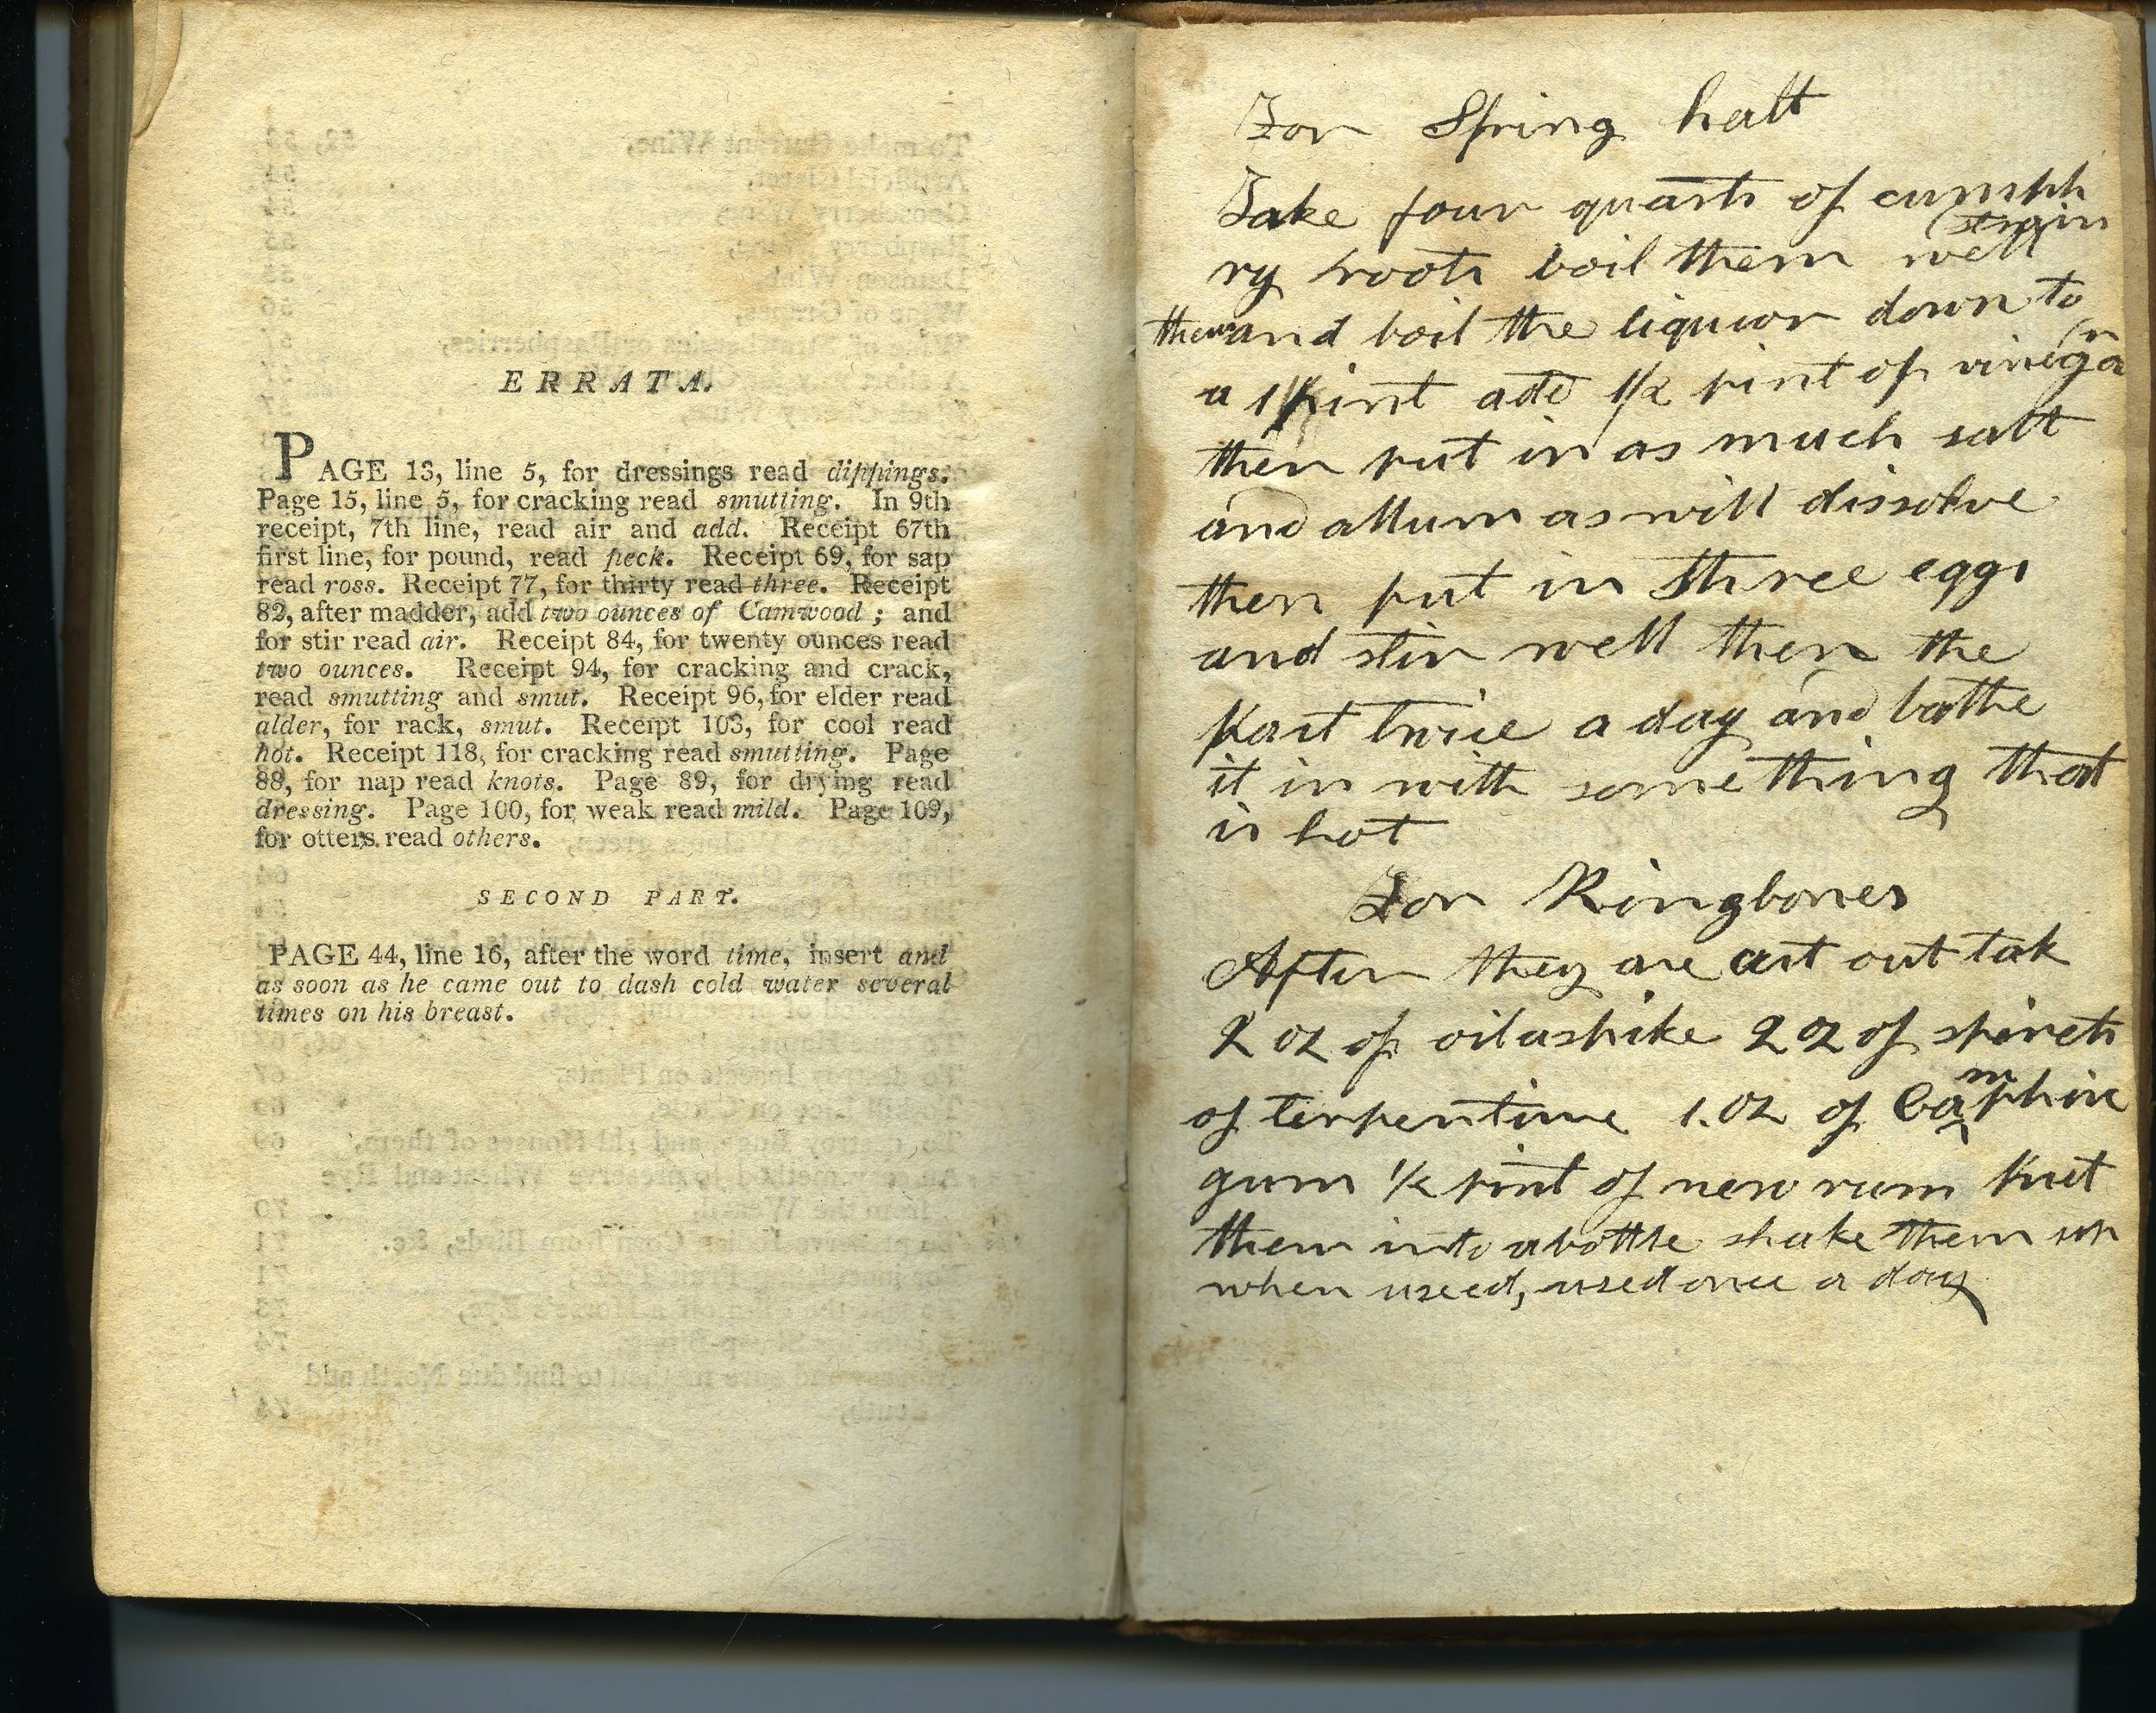 ERRATA.
PAGE 13, line 5, for dressings read dippings.
Page 15, line 5, for cracking read smutting. In 9th
receipt, 7th line, read air and add. Receipt 67th
first line, for pound, read peck. Receipt 69, for sap
read ross. Receipt 77, for thirty read three. Receipt
82, after madder, add two ounces of Camwood ; and
for stir read air. Receipt 84, for twenty ounces read
two ounces. Receipt 94, for cracking and crack,
read smutting and smut. Receipt 96, for elder read
alder, for rack, smut. Receipt 103, for cool read
hot. Receipt 118, for cracking read smutting. Page
88, for nap read knots. Page 89, for drying read
dressing. Page 100, for weak read mild. Page 109,
for otters read others.
SECOND PART.
PAGE 44, line 16, after the word time, insert and
as soon as he came out to dash cold water several
times on his breast.
For Spring halt
Take four quarts of cumph
ry roots boil them well strain
them and boil the liquor down to
a 1 pint add 1/2 pint of vinegar
then put in as much salt
and allum as will dissolve
then put in three eggs
and stir well then the
part twice a day and bathe
it in with something that
is hot
For Ringbones
After they are cut out tak
2 oz of oil aspike 2 oz of spirets
of terpentine 1. oz of Camphire
gum 1/2 pint of new rum put
them into a bottle shake them up
when useed, used once a day